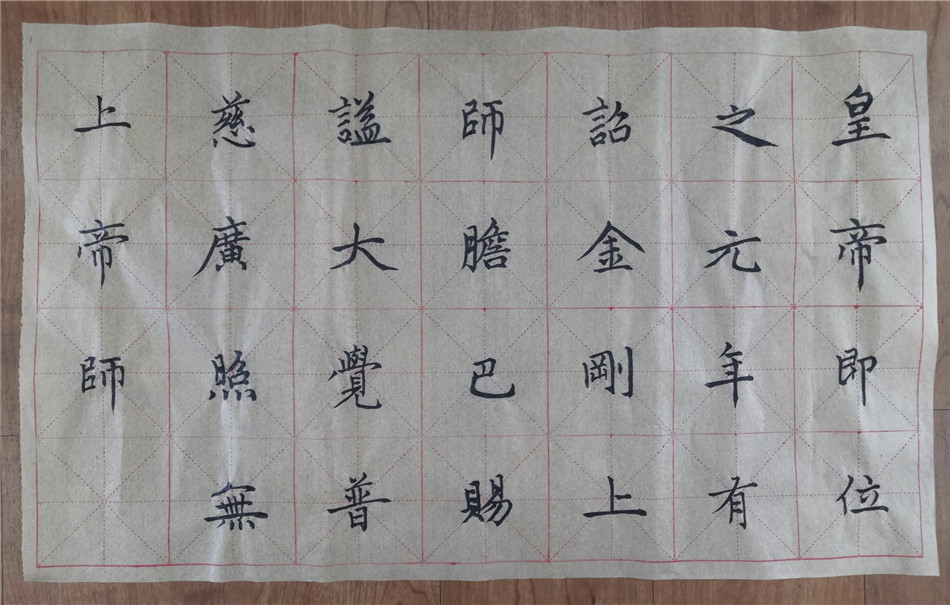 皇帝即位
之元年有
詔金剛上
師膽巴賜
謚大覺普
慈廣照無
上帝師